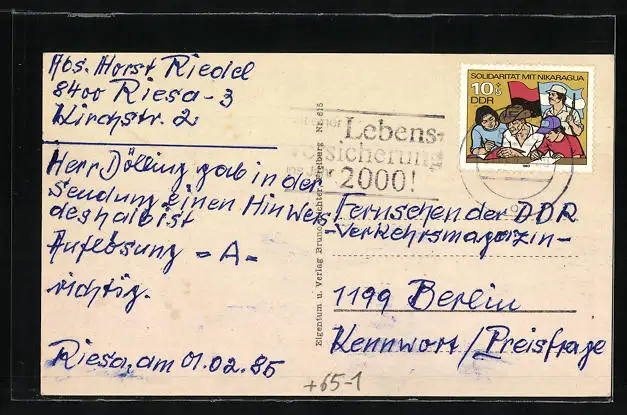 Abs. Horst Riedel
8400 Riesa-3
Kirchstr. 2
Herr Dölling gab in der
Sendung einen Hinweis
deshalb ist
Auflösung - A -
richtig.
Riesa, am 01.02.85
+65-1
Eigentum u. Verlag Bruno Nr. 615
einer Lebens-
versicherung
ins Jahr 2000!
SOLIDARITÄT MIT NIKARAGUA
10+5
DDR
Fernsehen der DDR
-Verkehrsmagazin-
1199 Berlin
Kennwort/Preisfrage